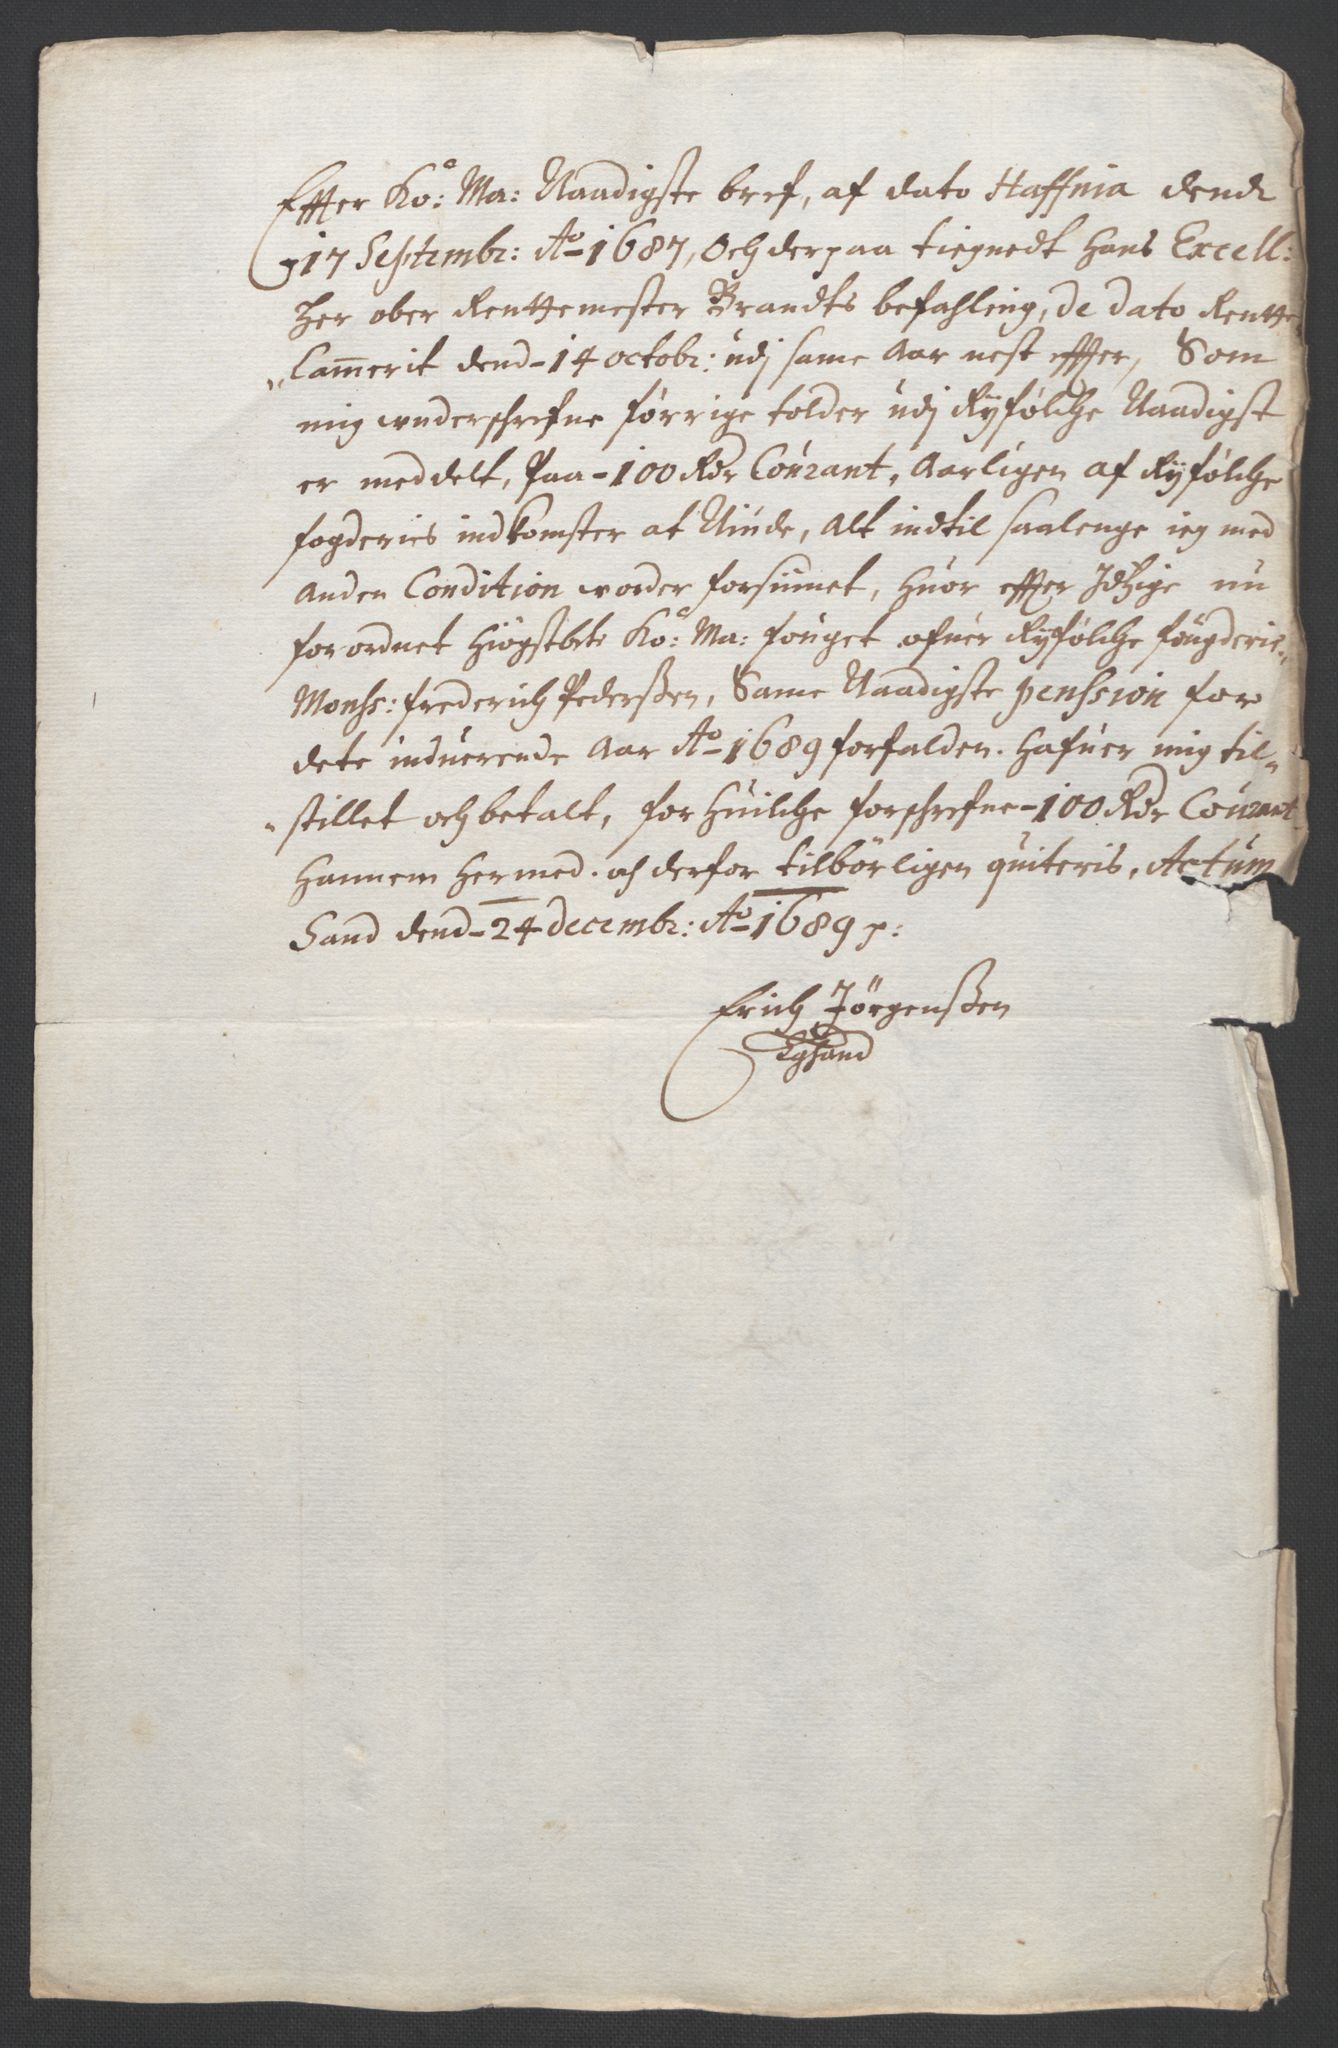 Effter Ko: Ma: Naadigste bref, af dato Haffnia dend
17 Septembr: Ao 1687, Och derpaa tiegnedt Hans Excell:
Her ober Renttemester Brandts befahling, de dato Rentte
Cam̃erit dend 14 octobr: udj same Aar nest effter, Som
mig underschrefne førrige tolder udj Ryfølche Naadigst
er meddelt, Paa 100 Rdr Courant, Aarligen af Ryfølche
fogderies indkomster at Niude, Alt indtil saalenge ieg med
Anden Condition vorder forsiunet, Huor effter Idtzige nu
forordnet Høigstbte Ko: Ma: fouget ofuer Ryfølche fougderie
Monss: frederich Pederßen, Same Naadigste penssion for
dete induerende Aar Ao 1689 forfalden. Hafuer mig til-
stillet och betalt, for Huilche forschrefne 100 Rdr Courant
Hannem Hermed och derfor tilbörligen quiteris, Actum
Sand dend 24 decembr: Ao 1689 p:
Erich Jörgenßen
Egsand